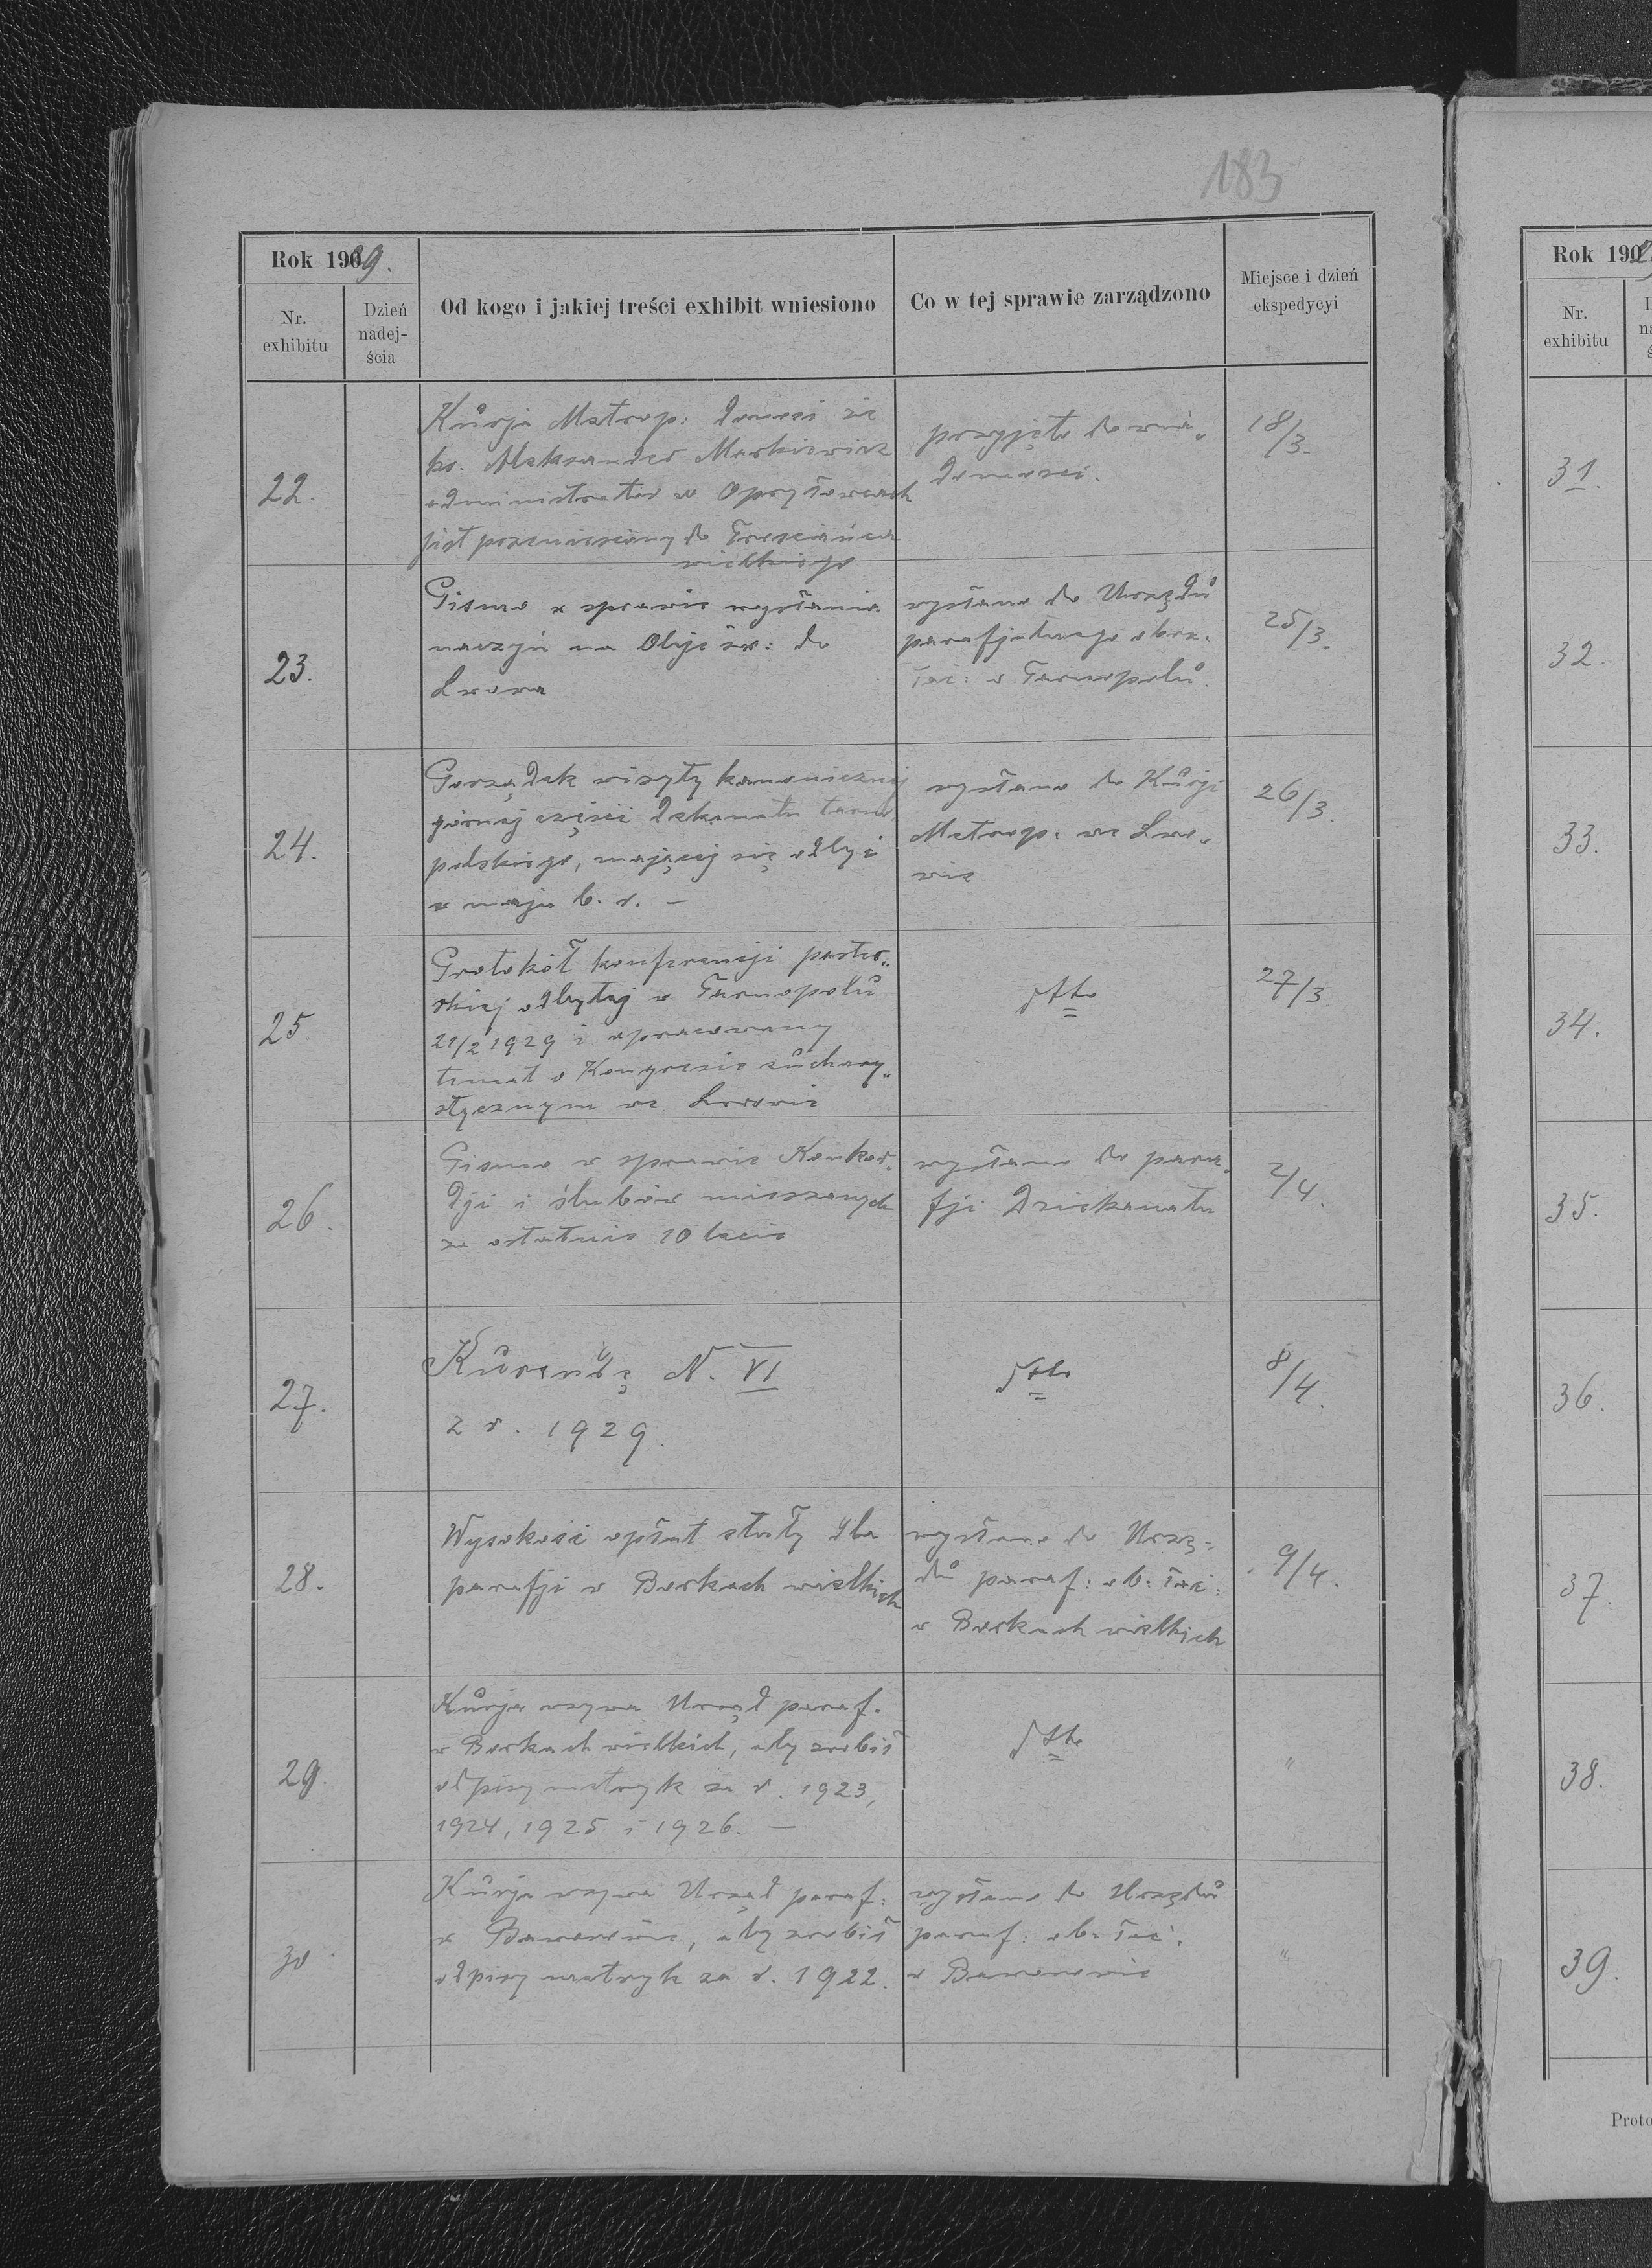 183
Rok 1929.
Nr. exhibitu
Dzień nadejścia
Od kogo i jakiej treści exhibit wniesiono
Co w tej sprawie zarządzono
Miejsce i dzień ekspedycyi
22.
Kurja Metrop: donosi że
ks. Aleksander Markiewicz
administrator w Opryłowcach
jest przeniesiony do Trościańca
wielkiego
przyjęto do wia„
domości.
18/3.
23.
Pismo w sprawie wysłania
naczyń na Oleje św: do
Lwowa
wysłano do Urzędu
parafjalnego obrz.
łać: w Tarnopolu.
25/3.
24.
Porządek wizyty kanonicznej
górnej części dekanatu tarno
polskiego, mającej się odbyć
w maju b. r. –
wysłano do Kurji
Metrop: we Lwo„
wie
26/3.
25
Protokół konferencji paster„
skiej odbytej w Tarnopolu
21/2 1929 i opracowany
temat o Kongresie euchary„
stycznym we Lwowie
dtto
27/3
26.
Pismo w sprawie Konkor„
dji i ślubów mieszanych
za ostatnie 10 lecie
wysłano do para„
fji Dziekanatu
2/4.
27.
Kurendę N. VI
z r. 1929.
dtto
8/4.
28.
Wysokość opłat stuły dla
parafji w Borkach wielkich
wysłano do Urzę-
du paraf: ob: łać:
w Borkach wielkich
9/4.
29.
Kurja wzywa Urząd paraf.
w Borkach wielkich, aby zrobił
odpisy metryk za r. 1923,
1924, 1925 i 1926. –
dtto
"
30
Kurja wzywa Urząd paraf:
w Baworowie, aby zrobił
odpisy metryk za r. 1922.
wysłano do Urzędu
paraf: ob: łać.
w Baworowie
"
Rok 190
Nr. exhibitu
31.
32.
33.
34.
35.
36.
37.
38.
39.
Proto